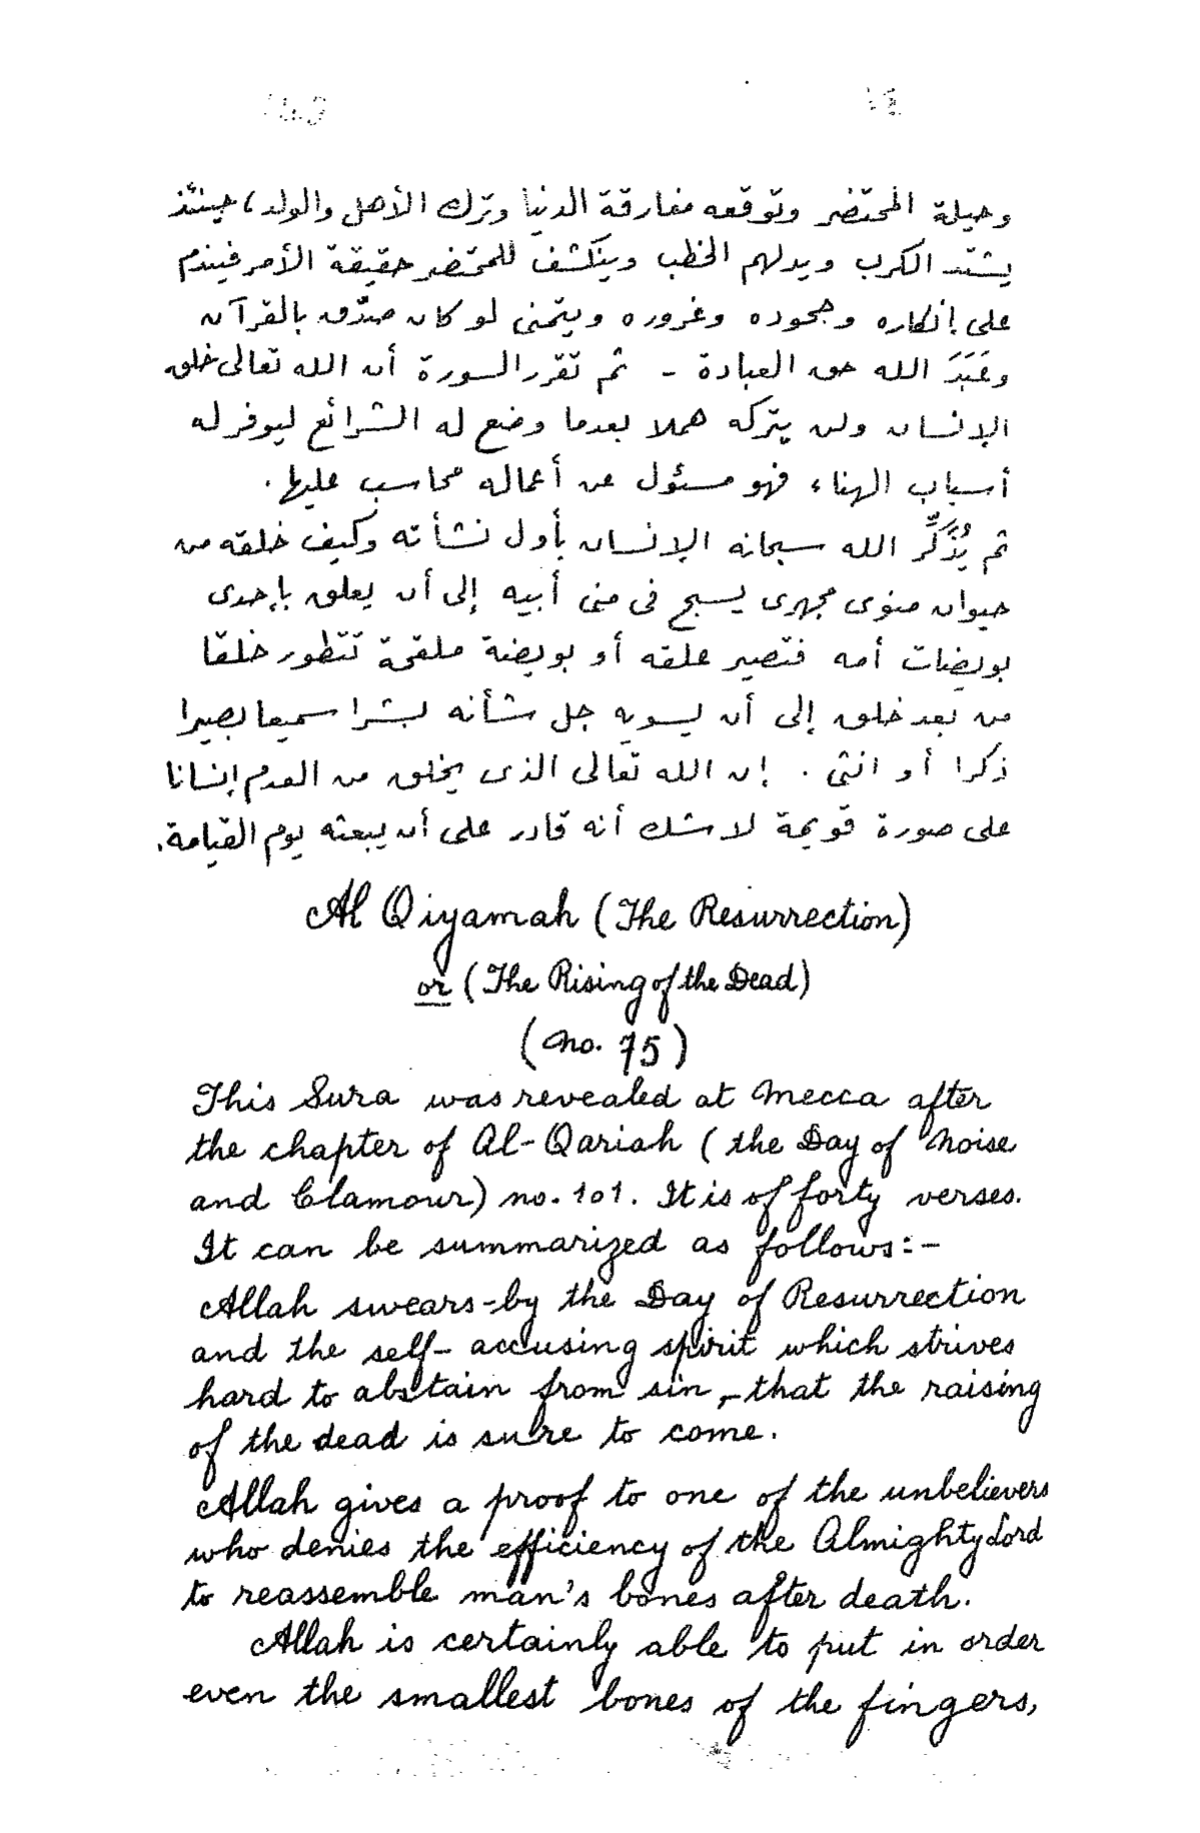 وحيلة المحتضر وتوقعه مفارقة الدنيا وترك الأهل والولد، حينئذ
يشتد الكرب ويدلهم الخطب وينكشف للمحتضر حقيقة الأمر فيندم
على إنكاره وجحوده وغروره ويتمنى لو كان صدّق بالقرآن
وعَبَدَ الله حق العبادة - ثم تقرر السورة أن الله تعالى خلق
الإنسان ولن يتركه هملا بعدما وضع له الشرائع ليوفر له
أسباب الهناء فهو مسئول عن أعماله محاسب عليها.
ثم يُذَكِّر الله سبحانه الإنسان بأول نشأته وكيف خلقه من
حيوان منوى مجهرى يسبح فى منى أبيه إلى أن يعلق بإحدى
بويضات أمه فتصير علقه أو بويضة ملقحة تتطور خلقا
من بعد خلق إلى أن يسويه جل شأنه بشرا سميعا بصيرا
ذكرا أو انثى. إن الله تعالى الذى يخلق من العدم إنسانا
على صورة قويمة لا شك أنه قادر على أن يبعثه يوم القيامة.
Al Qiyamah (The Resurrection)
or (The Rising of the Dead)
(no. 75)
This Sura was revealed at Mecca after
the chapter of Al-Qariah (the Day of Noise
and Clamour) no. 101. It is of forty verses.
It can be summarized as follows:-
Allah swears-by the Day of Resurrection
and the self-accusing spirit which strives
hard to abstain from sin,-that the raising
of the dead is sure to come.
Allah gives a proof to one of the unbelievers
who denies the efficiency of the Almighty Lord
to reassemble man's bones after death.
Allah is certainly able to put in order
even the smallest bones of the fingers,